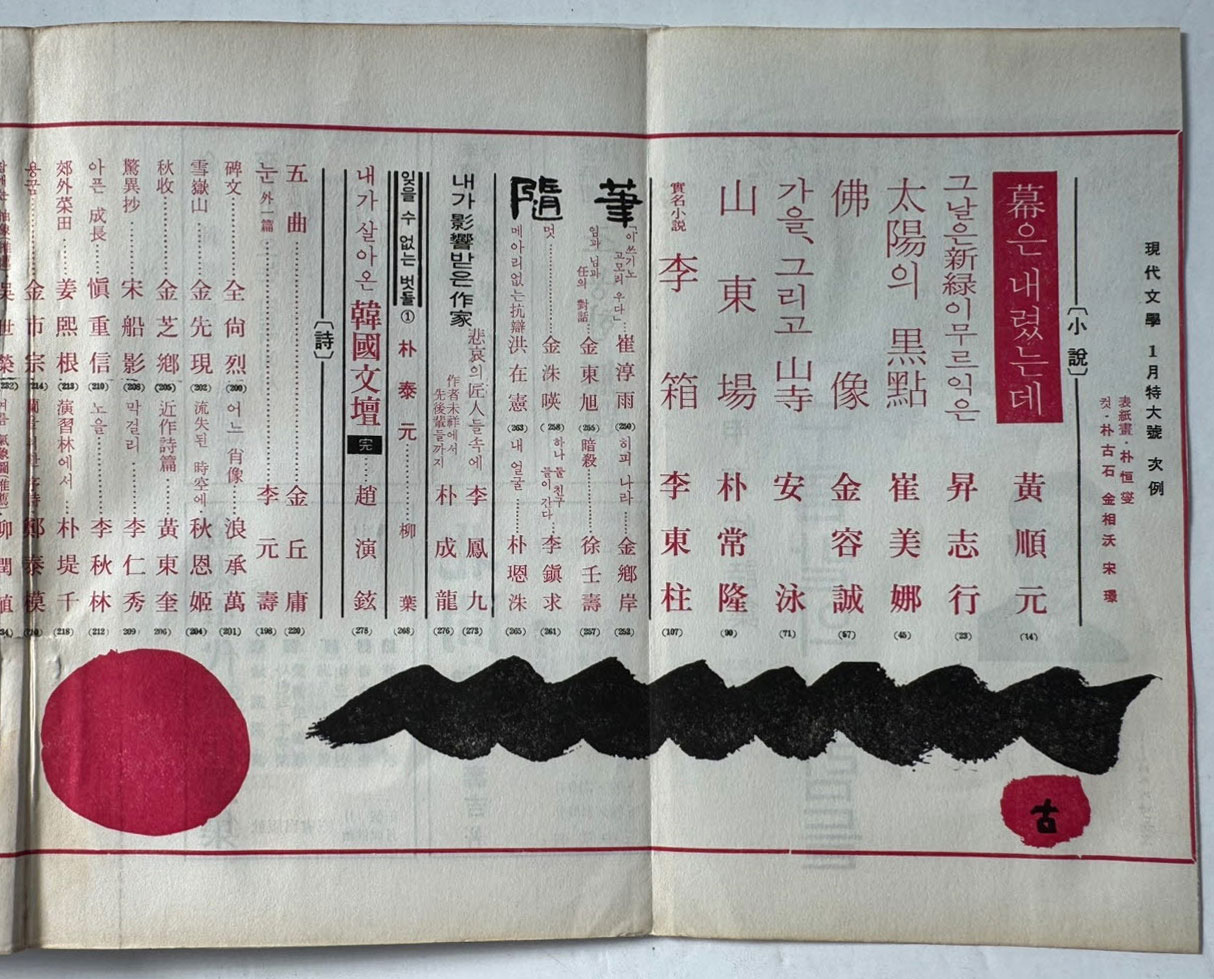 現代文學 1月特大號 次例
表紙畫·朴恒燮
컷·朴古石 金相沃 宋璟
〔小說〕
幕은 내렸는데 黃順元 (14)
그날은新緑이무르익은 昇志行 (23)
太陽의 黒點 崔美娜 (45)
佛像 金容誠 (57)
가을, 그리고 山寺 安泳 (71)
山東場 朴常隆 (90)
實名小說 李箱 李東柱 (107)
隨筆
「아쓰기노 고모리 우다」……崔淳雨 (250)
히피 나라……金鄕岸 (252)
님과 任의 對話……金東旭 (255)
暗殺……徐壬壽 (257)
멋……金洙暎 (258)
하나 둘 친구들이 간다……李鎭求 (261)
메아리없는抗辯 洪在憲 (263)
내 얼굴……朴璁洙 (265)
내가 影響받은 作家
悲哀의匠人들속에 李鳳九 (273)
作者未祥에서 先後輩들까지 朴成龍 (276)
잊을 수 없는 벗들① 朴泰元……柳葉 (268)
내가 살아온 韓國文壇 完……趙演鉉 (278)
〔詩〕
五曲……金丘庸 (220)
눈 外一篇……李元壽 (198)
碑文……全尙烈 (200)
어느 肖像……浪承萬 (201)
雪嶽山……金先現 (202)
流失된 時空에 秋恩姬 (204)
秋收……金芝鄕 (205)
近作詩篇……黃東奎 (206)
驚異抄……宋船影 (208)
막걸리……李仁秀 (209)
아픈 成長……愼重信 (210)
노을……李秋林 (212)
郊外菜田……姜熙根 (213)
演習林에서……朴堤千 (218)
용꿈……金市宗 (214)
鄭泰模
吳世榮 (232)
柳潤植
古